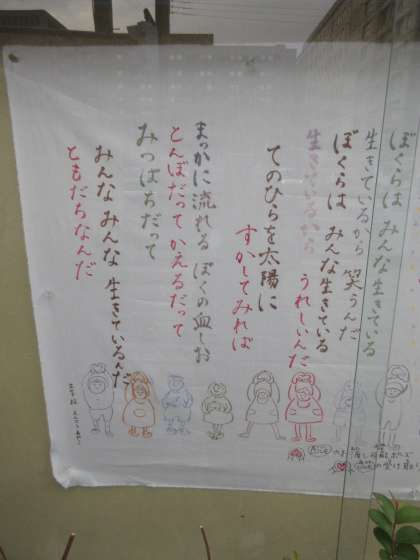 ぼくらは みんな 生きている
生きているから 笑うんだ
ぼくらは みんな生きている
生きているから うれしいんだ
てのひらを太陽に
すかしてみれば
まっかに流れる ぼくの血しお
とんぼだって かえるだって
みつばちだって
みんな みんな 生きているんだ
ともだちなんだ